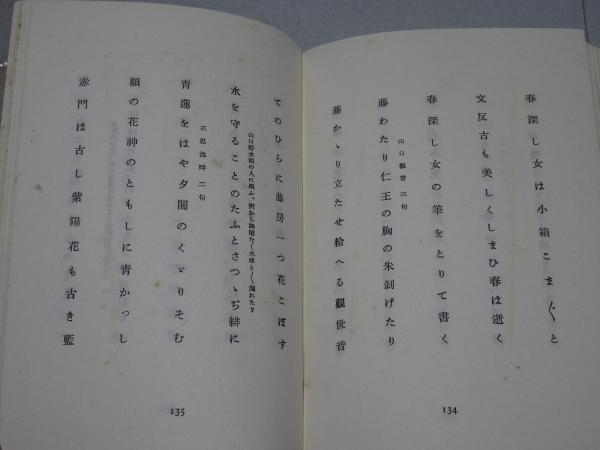 春深し女は小箱こま〴〵と
文反古も美しくしまひ春は逝く
春深し女の筆をとりて書く
山口觀音二句
藤わたり仁王の胸の朱剝げたり
藤かゝり立たせ給へる觀世音
134
てのひらに藤房一つ花こぼす
山口貯水池の人に與ふ、
水を守ることのたふとさつゝぢ緋に
不忍池畔二句
青蓮をはや夕闇のくゞりそむ
額の花神のともしに青かつし
赤門は古し紫陽花も古き藍
135